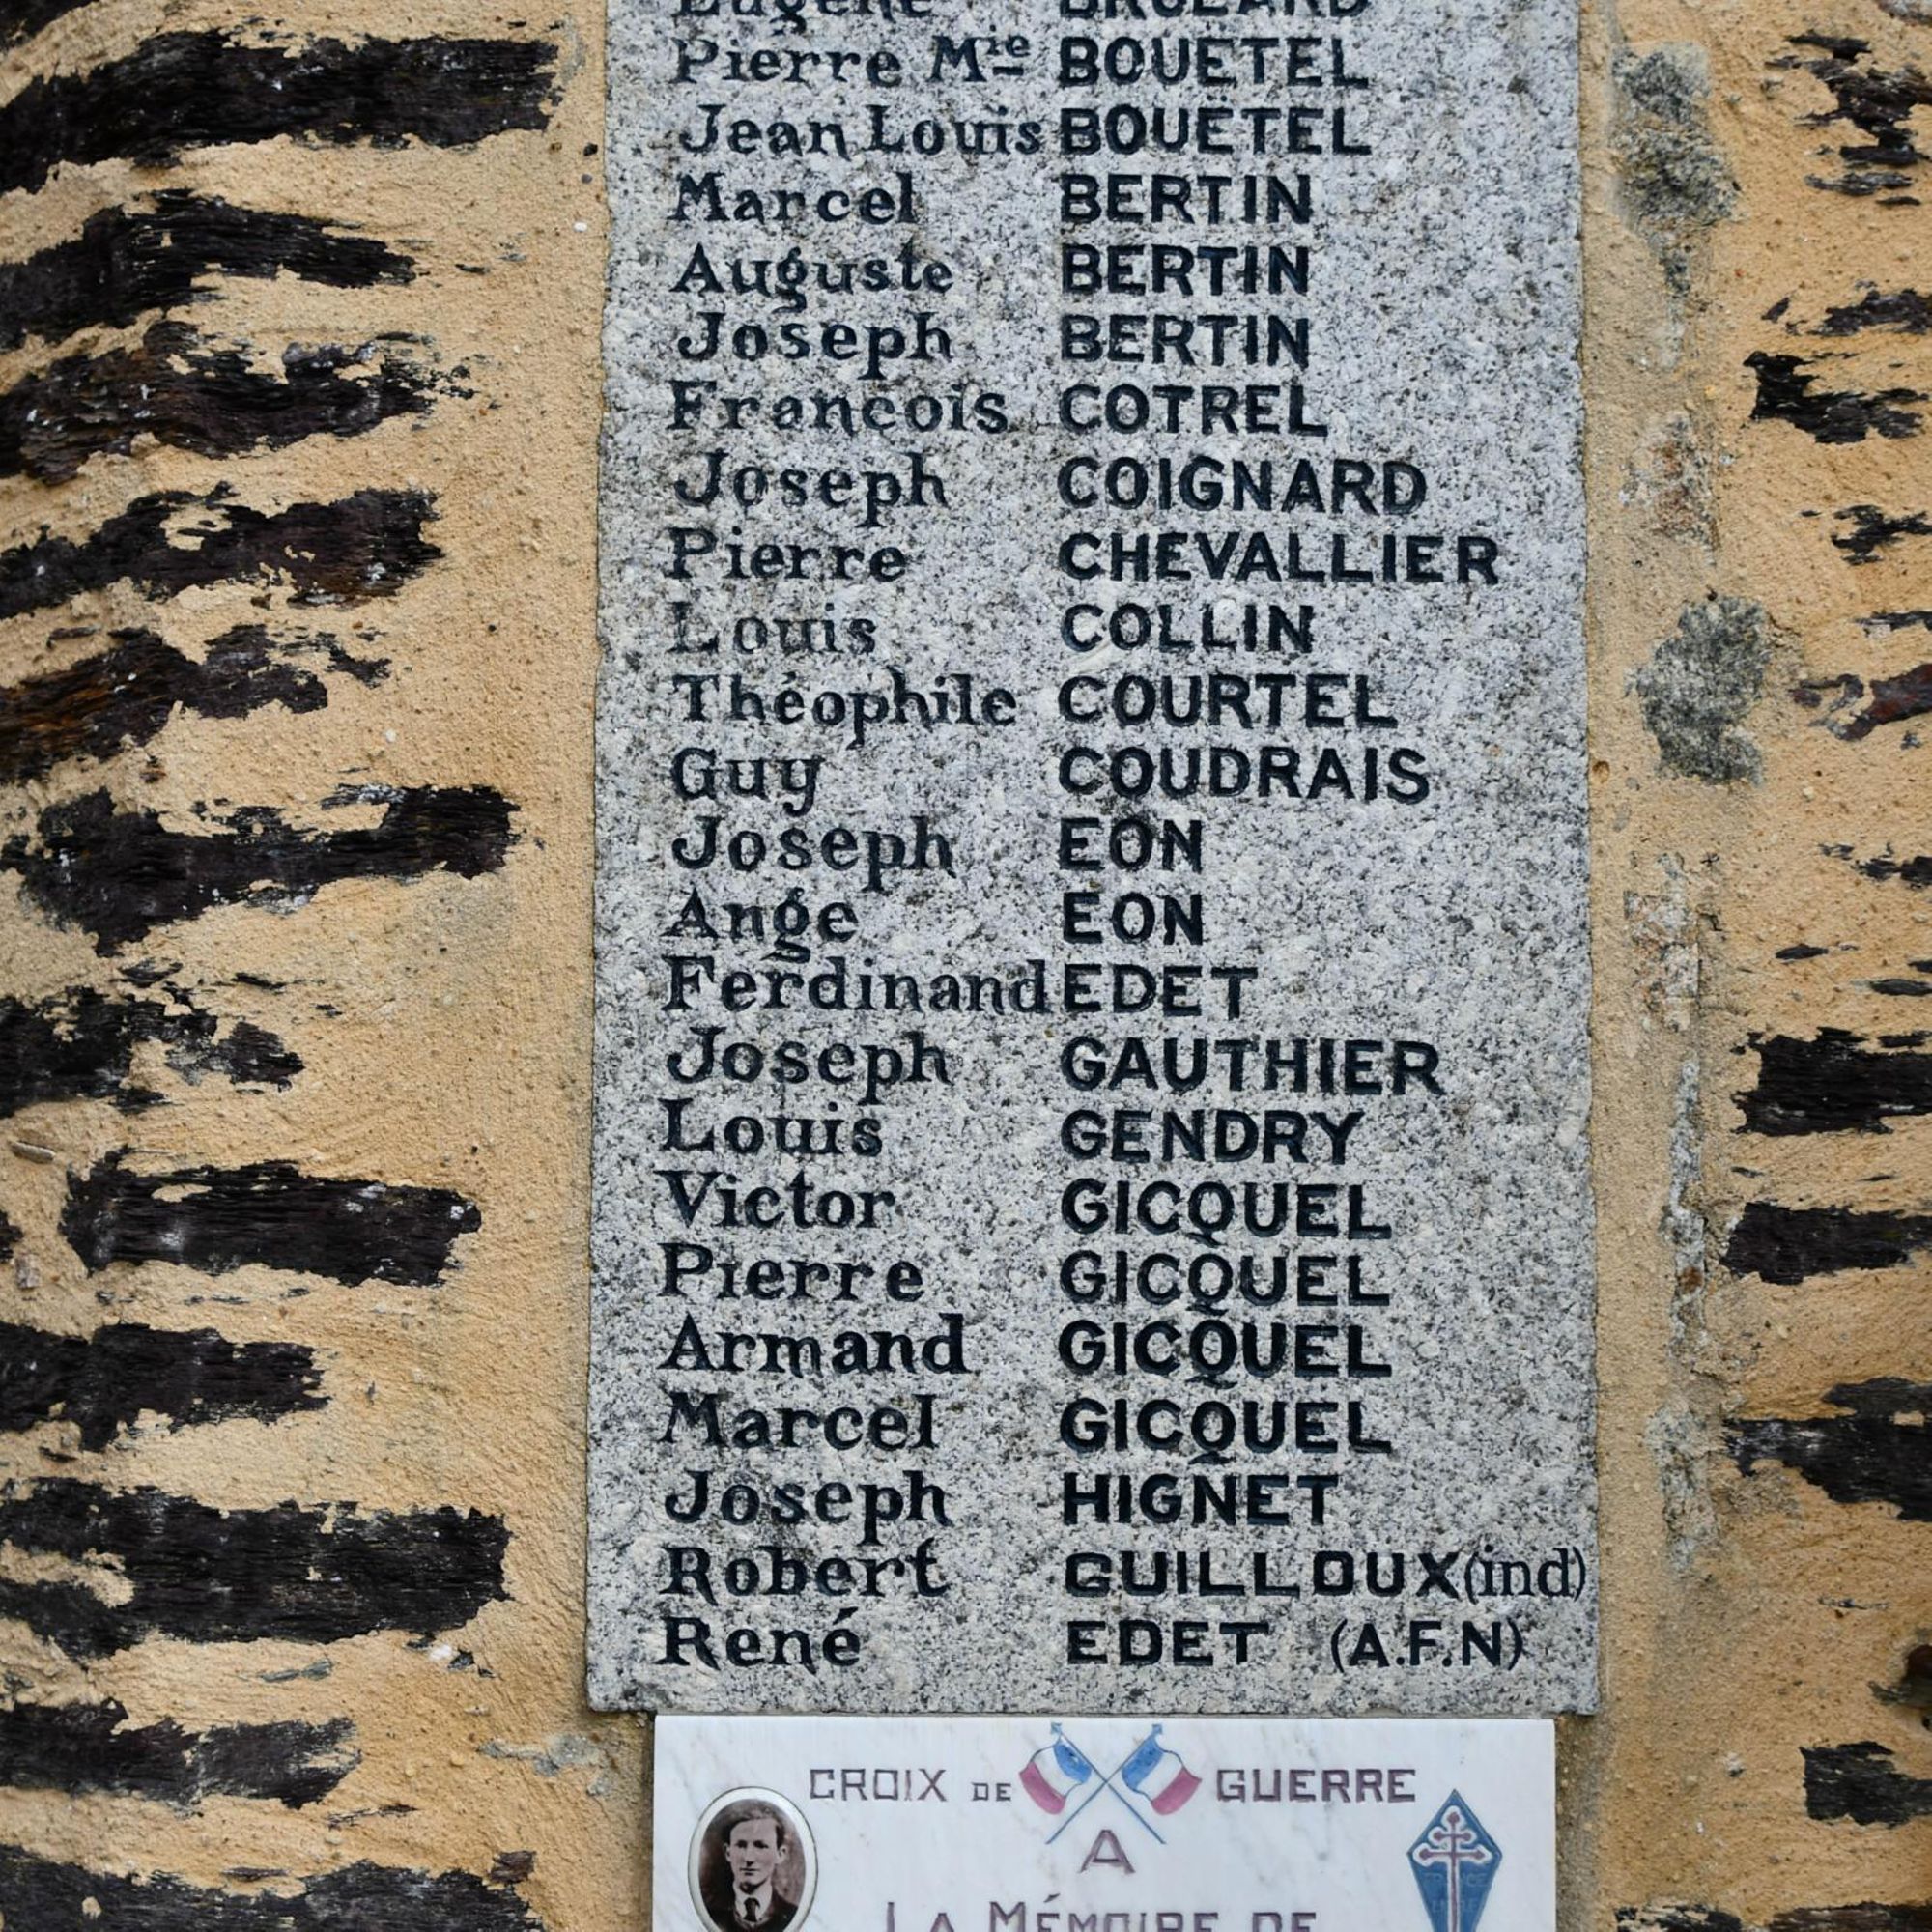 Eugène BRULARD
Pierre Mie BOUËTEL
Jean Louis BOUËTEL
Marcel BERTIN
Auguste BERTIN
Joseph BERTIN
Francois COTREL
Joseph COIGNARD
Pierre CHEVALLIER
Louis COLLIN
Théophile COURTEL
Guy COUDRAIS
Joseph EON
Ange EON
Ferdinand EDET
Joseph GAUTHIER
Louis GENDRY
Victor GICQUEL
Pierre GICQUEL
Armand GICQUEL
Marcel GICQUEL
Joseph HIGNET
Robert GUILLOUX (ind)
René EDET (A.F.N)
CROIX DE GUERRE
A
LA MÉMOIRE DE